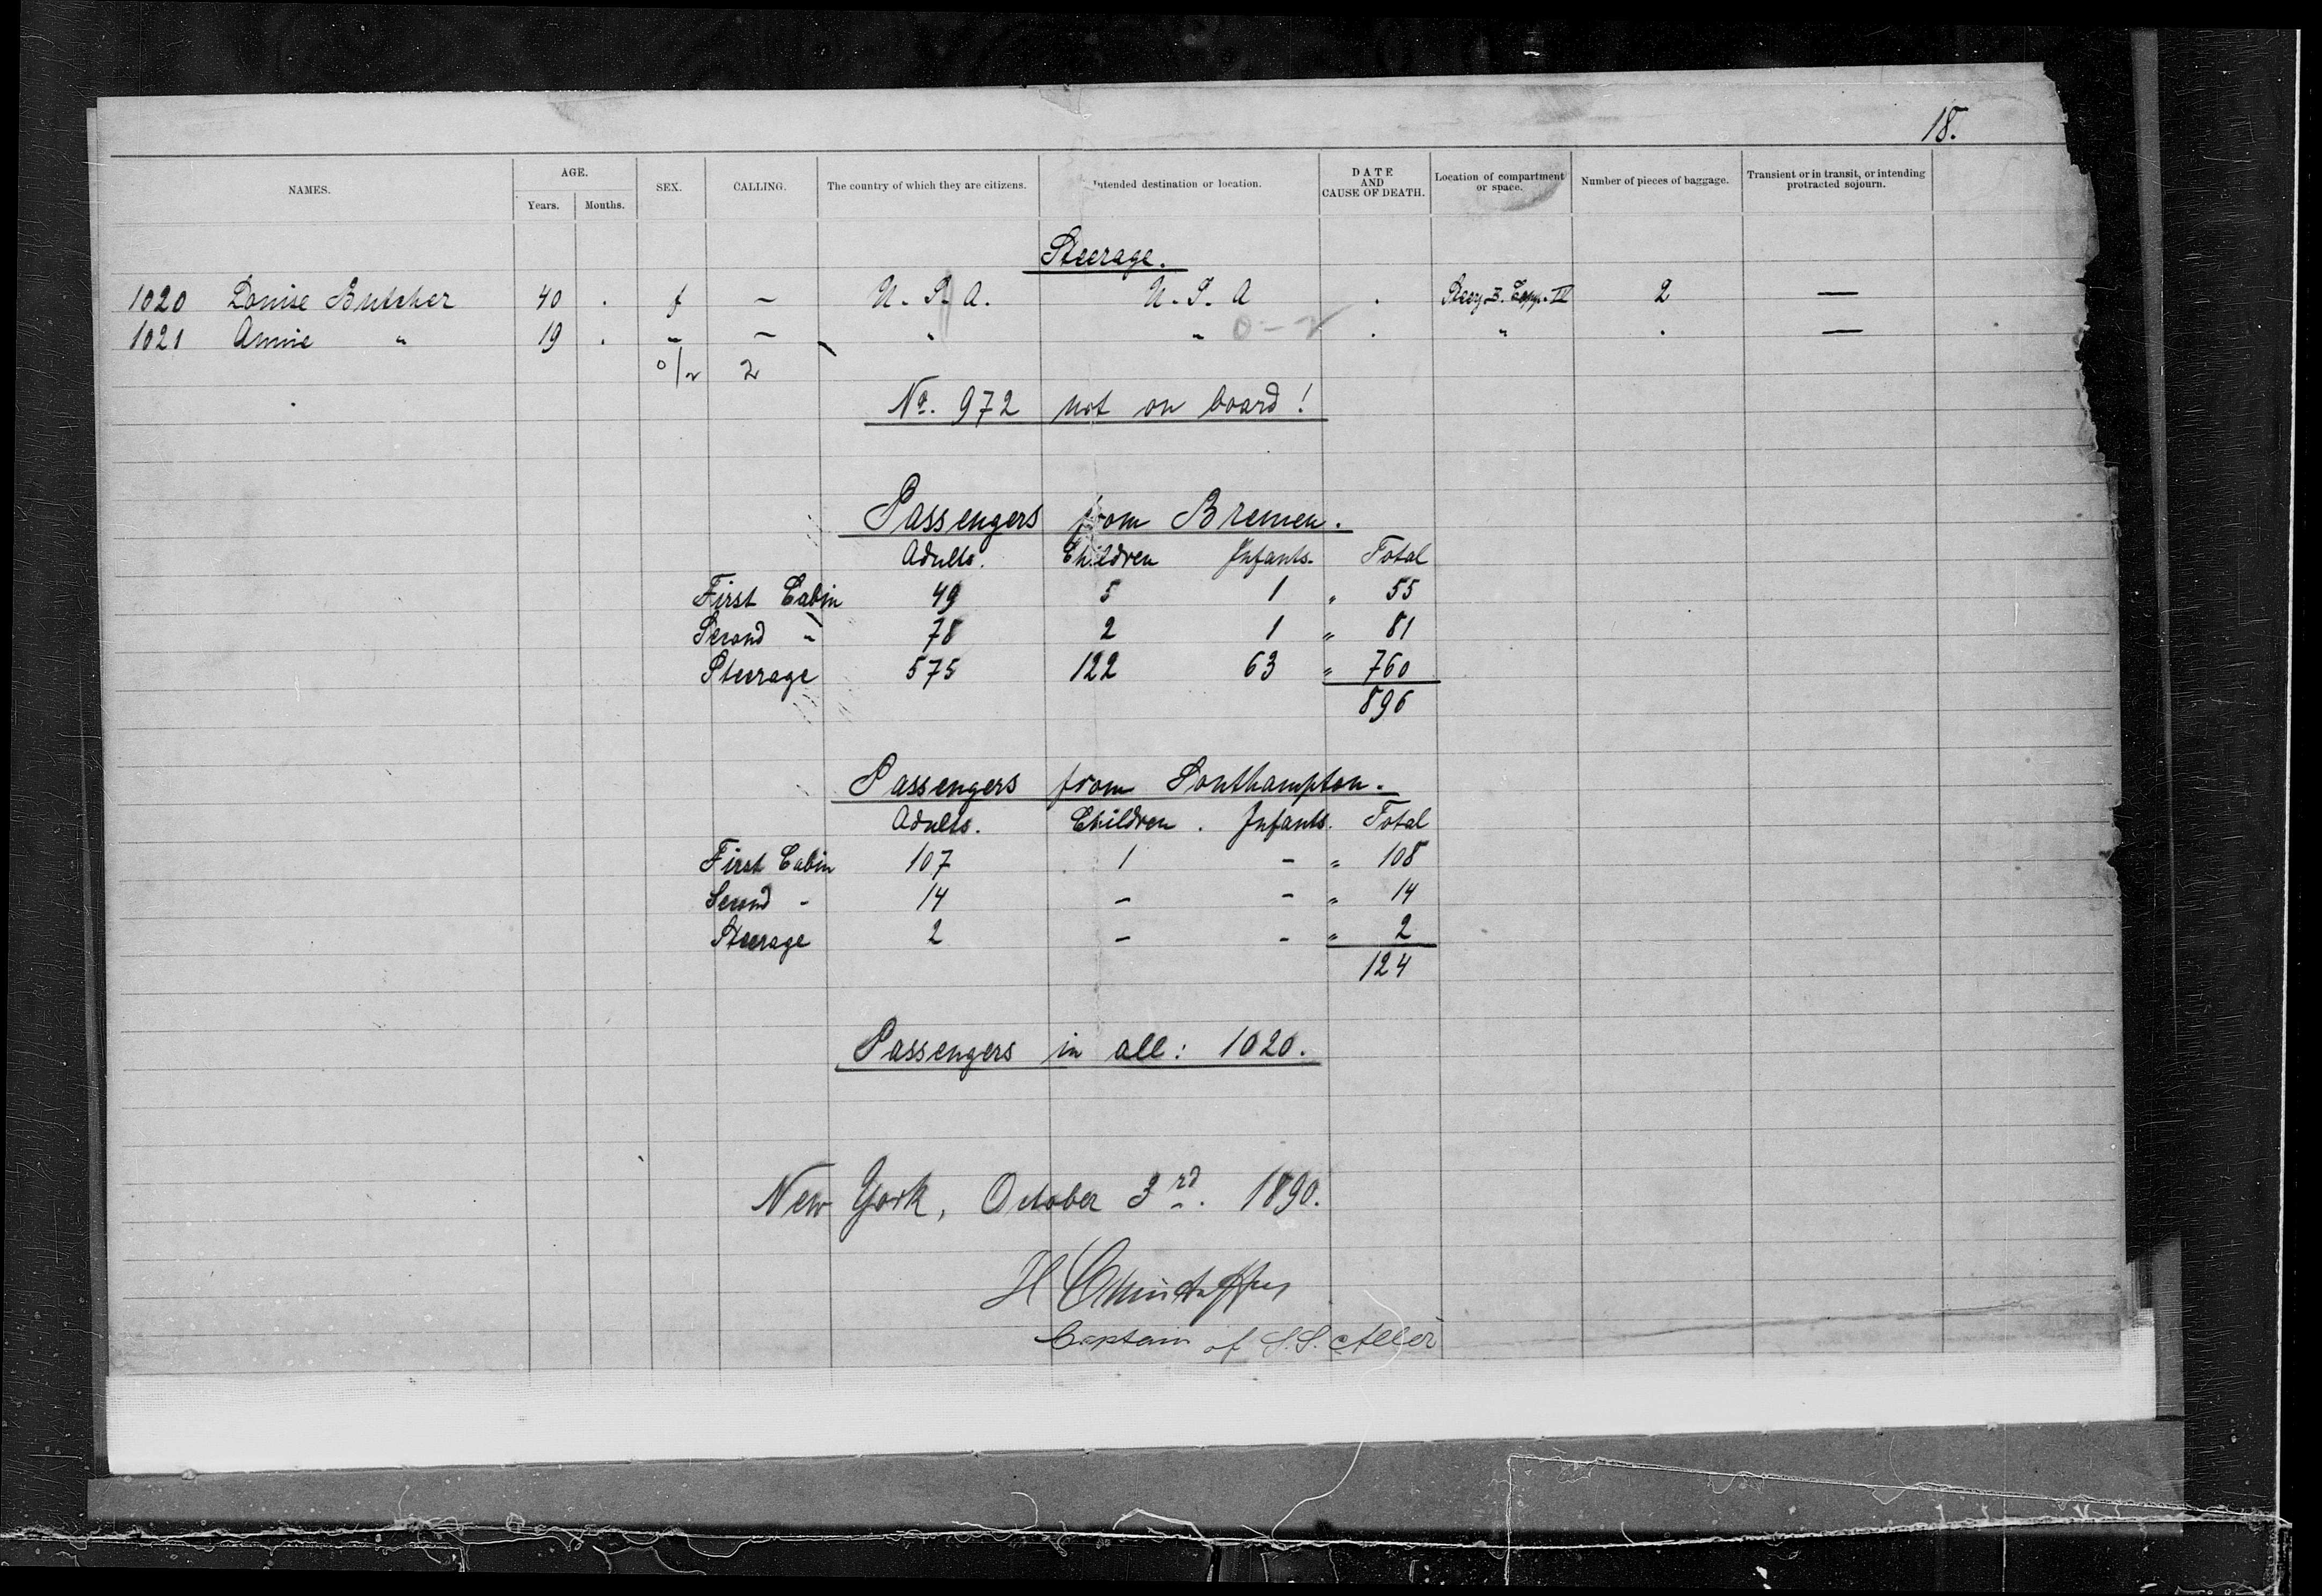 18.
NAMES. AGE. Years. Months. SEX. CALLING. The country of which they are citizens. Intended destination or location. DATE AND CAUSE OF DEATH. Location of compartment or space. Number of pieces of baggage. Transient or in transit, or intending protracted sojourn.
Steerage.
1020 Louise Butcher 40 . f – U. S. A. U. S. A . 2 —
1021 Annie " 19 . " – " " 0–2 . " . —
0/2 2
No. 972 not on board!
Passengers from Bremen.
Adults. Children Infants. Total
First Cabin 49 5 1 " 55
Second " 78 2 1 " 81
Steerage 575 122 63 " 760
896
Passengers from Southampton.
Adults. Children . Infants. Total
First Cabin 107 1 – " 108
Second " 14 – – " 14
Steerage 2 – – " 2
124
Passengers in all: 1020.
New York, October 3rd. 1890.
H Christoffers
Captain of S.S. Aller